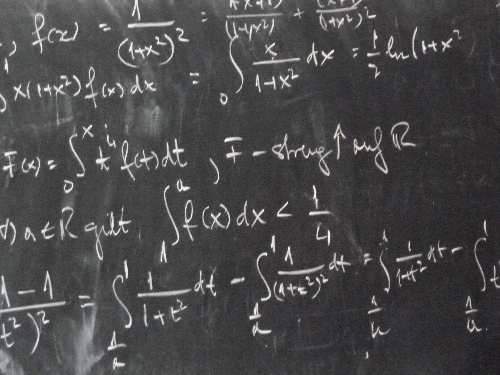 , f(x) = 1/(1+x²)² =
∫ x(1+x²) f(x) dx = ∫₀ x/(1+x²) dx = 1/2 ln(1+x²
F(x) = ∫₀ˣ t⁴ f(t) dt , F - streng ↑ auf ℝ
d) a ∈ ℝ gilt ∫₁ᵃ f(x) dx < 1/4
1-1/(t²)² = ∫_{1/a}^{1} 1/(1+t²) dt - ∫_{1/a}^{1} 1/(1+t²)² dt = ∫_{1/a}^{1} 1/(1+t²) dt - ∫_{1/a}^{1}